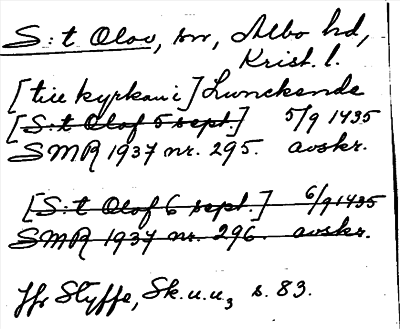 S:t Olov, sn, Albo hd,
Krist. l.
[tiil kyrkan i] Lunckende
[S:t Olof 5 sept.] 5/9 1435
SMR 1937 nr. 295. avskr.
[S:t Olof 6 sept.] 6/9 1435
SMR 1937 nr. 296. avskr.
Jfr Styffe, Sk.u.u3 s. 83.